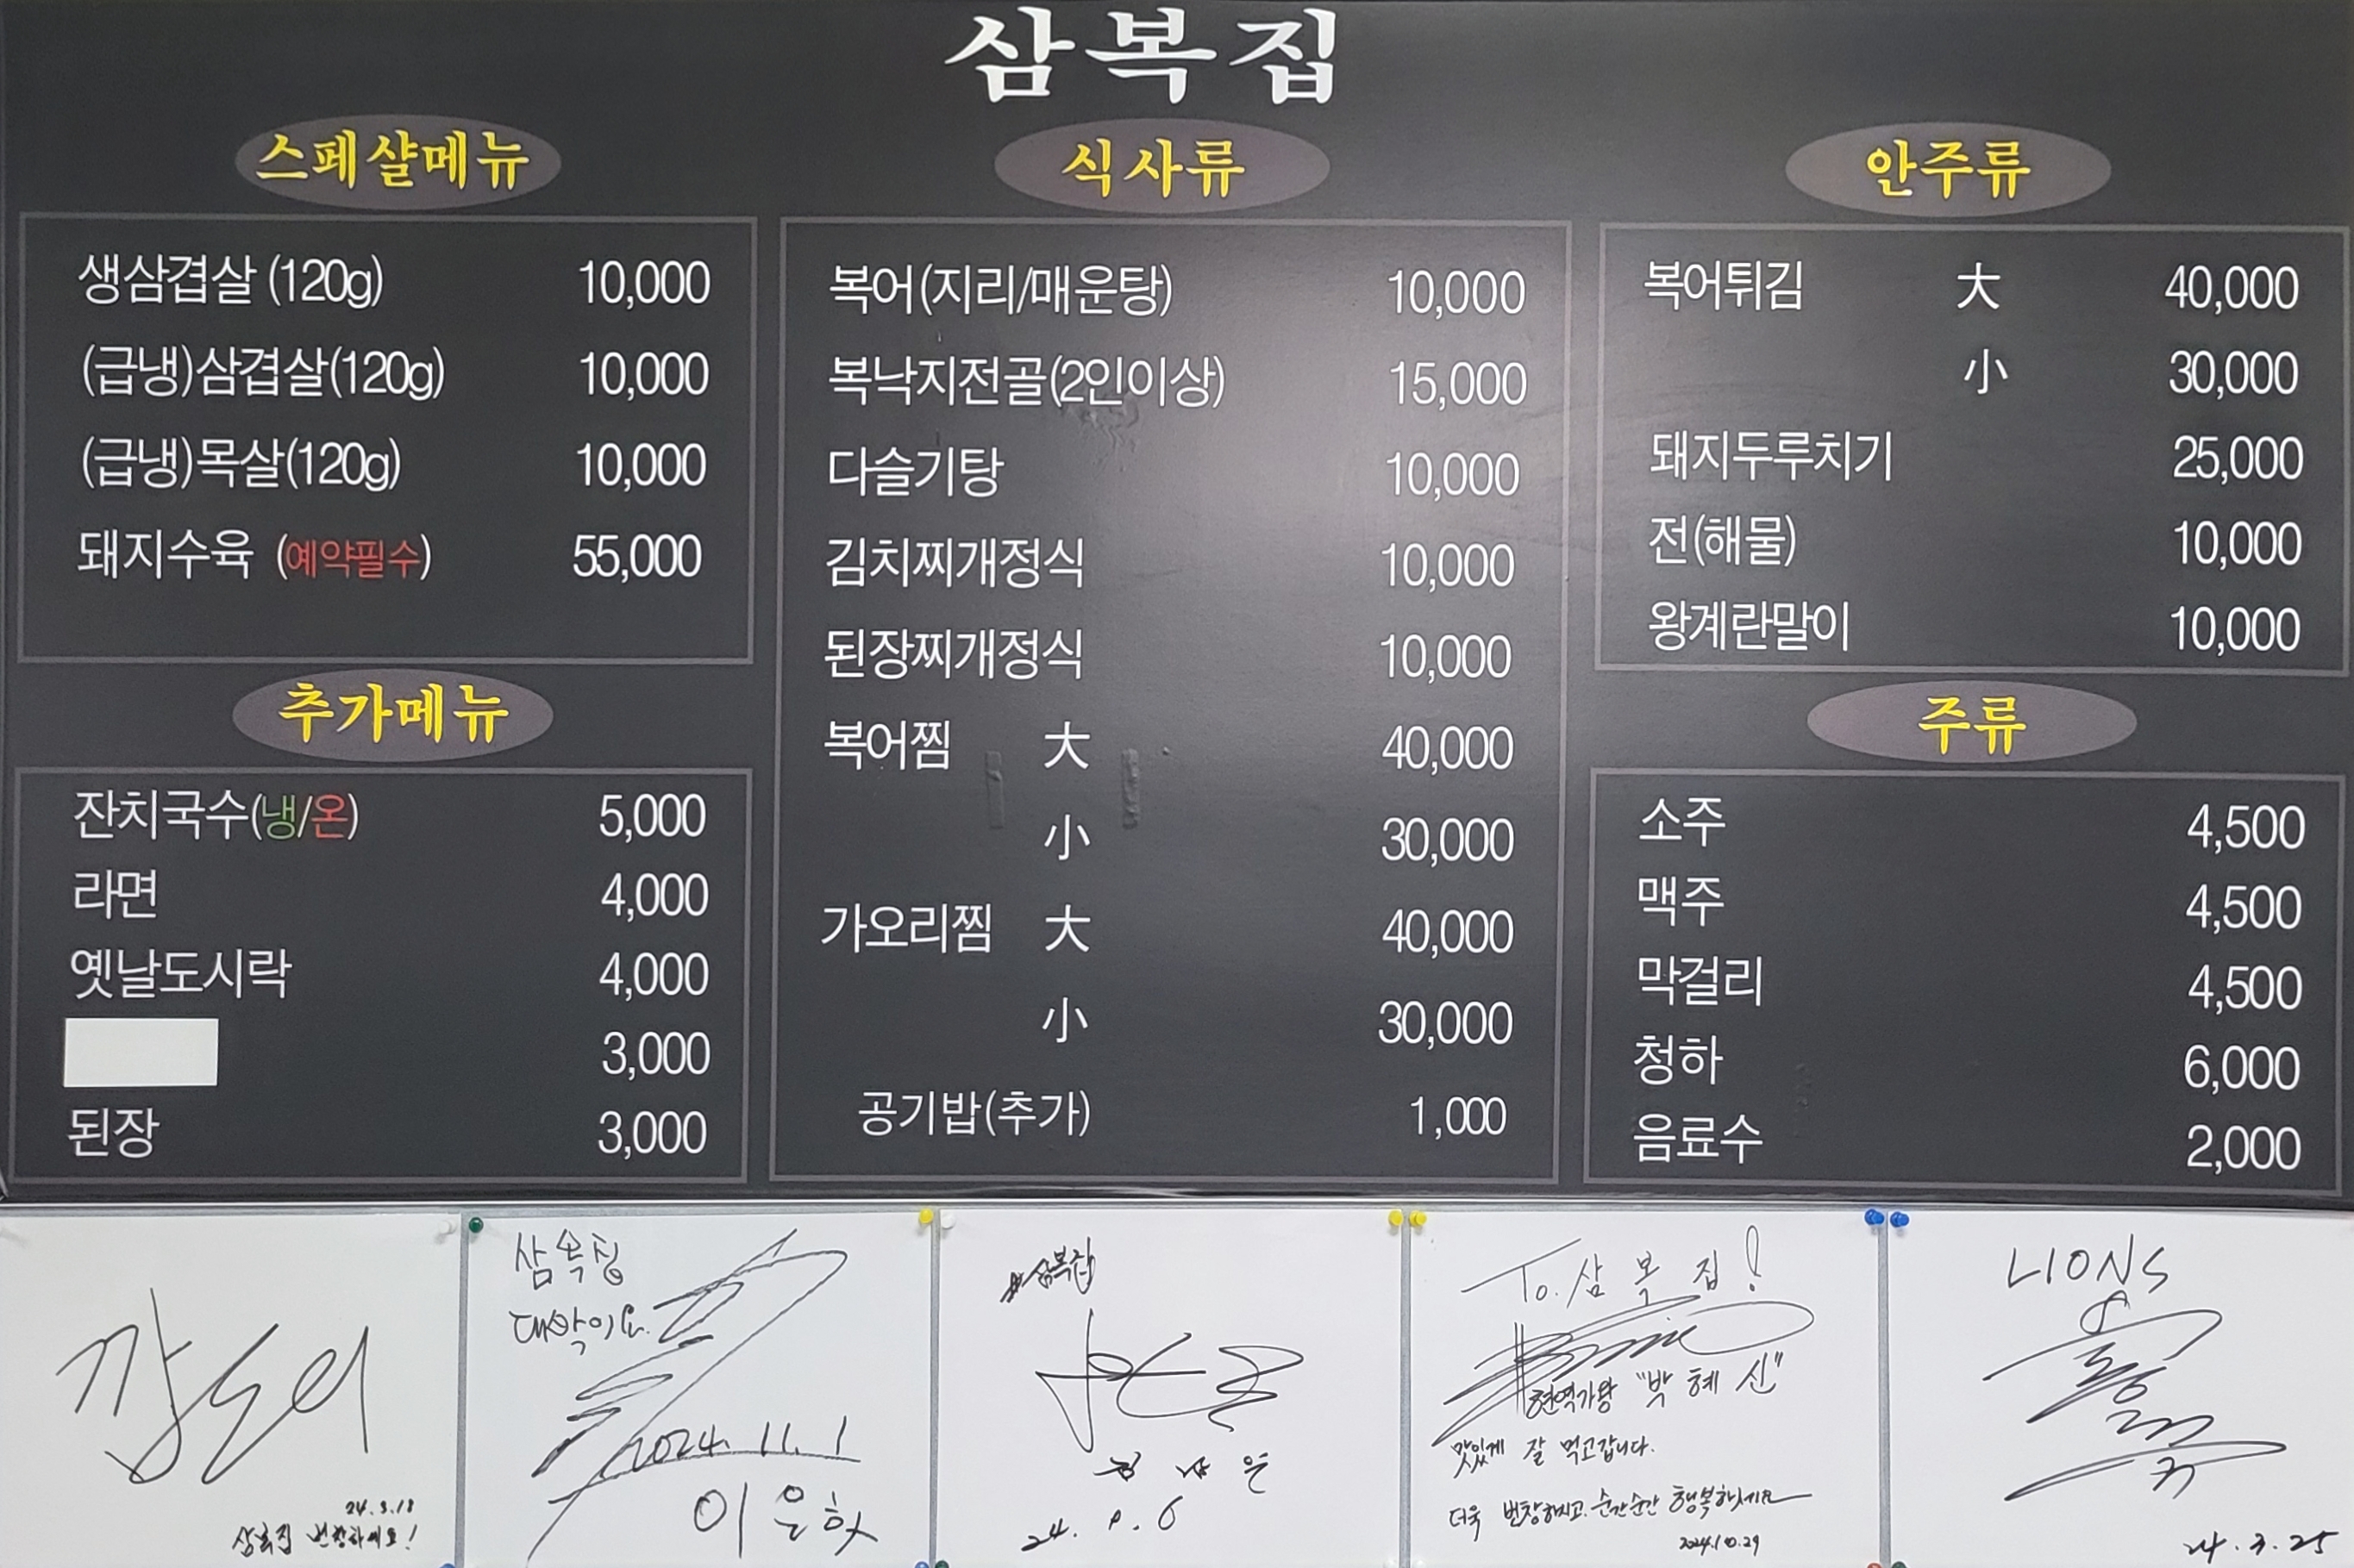 삼복집
스페샬메뉴
생삼겹살 (120g) 10,000
(급냉)삼겹살(120g) 10,000
(급냉)목살(120g) 10,000
돼지수육 (예약필수) 55,000
추가메뉴
잔치국수(냉/온) 5,000
라면 4,000
옛날도시락 4,000
3,000
된장 3,000
식사류
복어(지리/매운탕) 10,000
복낙지전골(2인이상) 15,000
다슬기탕 10,000
김치찌개정식 10,000
된장찌개정식 10,000
복어찜 大 40,000
小 30,000
가오리찜 大 40,000
小 30,000
공기밥(추가) 1,000
안주류
복어튀김 大 40,000
小 30,000
돼지두루치기 25,000
전(해물) 10,000
왕계란말이 10,000
주류
소주 4,500
맥주 4,500
막걸리 4,500
청하 6,000
음료수 2,000
24.3.18
삼복집 번창하세요!
삼복집
대박이요.
2024. 11. 1
이은하
삼복집
24.
To. 삼복집!
현역가왕 "박혜신"
맛있게 잘 먹고갑니다.
더욱 번창하시고. 순간순간 행복하세요
2024.10.29
LIONS
24.3.25